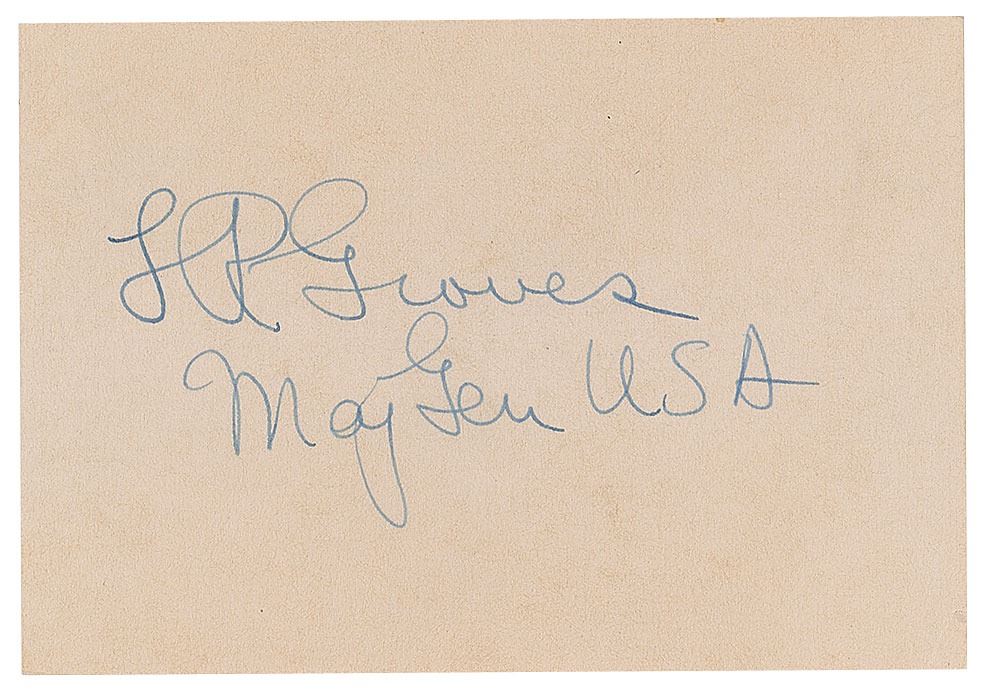 LR Groves
Maj Gen USA